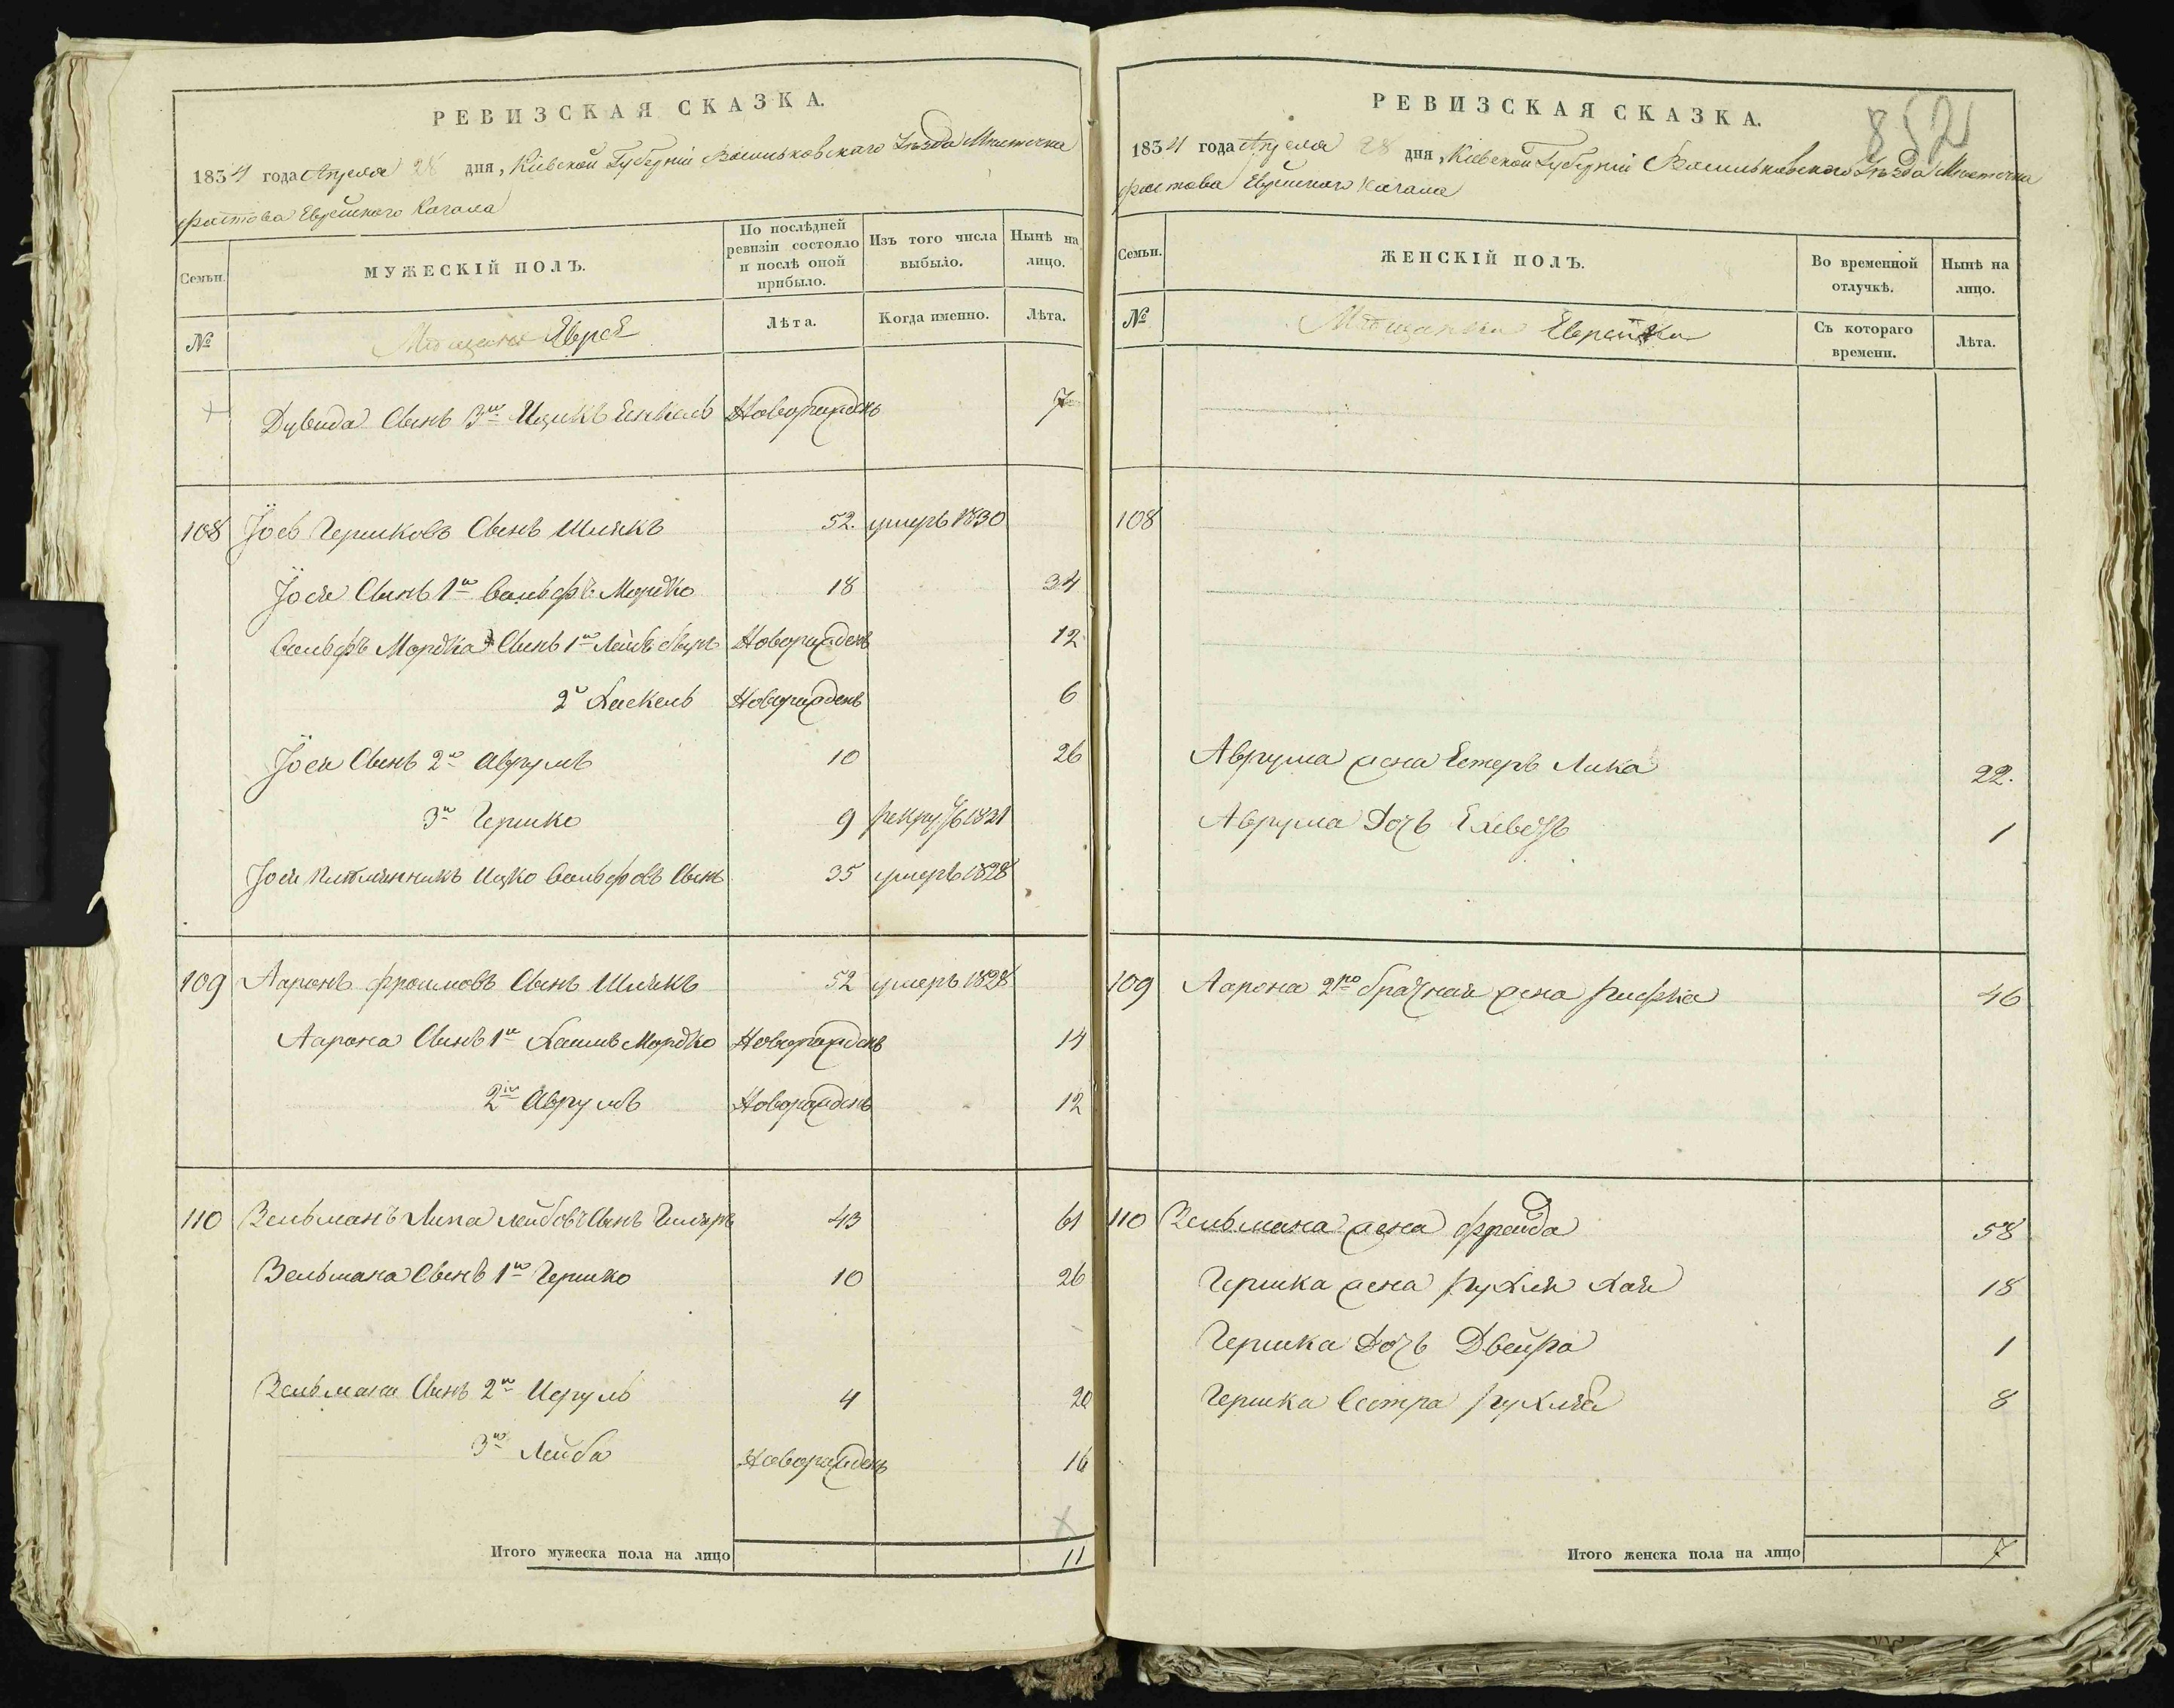 РЕВИЗСКАЯ СКАЗКА.
1834 года Апреля 28 дня, Кіевской Губерніи Васильковскаго Уѣзда Мѣстечка
Фастова Еврейского Кагала
Семьи.
МУЖЕСКІЙ ПОЛЪ.
По послѣдней ревизіи состояло и послѣ оной прибыло.
Изъ того числа выбыло.
Нынѣ на лицо.
№
Мѣщане Евреи
Лѣта.
Когда именно.
Лѣта.
Дувида Сынъ 3й Ицикъ Новорожденъ 7
108 Іось Гершковъ Сынъ 52. умеръ 1830
Іося Сынъ 1й Вольфъ Мордко 18 34
Вольфъ Мордка Сынъ 1й Новорожденъ 12
2й Хаскель Новорожденъ 6
Іося Сынъ 2й Аврумъ 10 26
3й Гершко 9 1821
Іося племянникъ Ицко Вольфовъ Сынъ 35 умеръ 1828
109 Ааронъ Фроимовъ Сынъ 52 умеръ 1828
Аарона Сынъ 1й Хаимъ Мордко Новорожденъ 14
2й Аврумъ Новорожденъ 12
110 Зельманъ Липа Лейбовъ Сынъ 43 61
Зельмана Сынъ 1й Гершко 10 26
Зельмана Сынъ 2й Исруль 4 20
3й Лейба Новорожденъ 16
Итого мужеска пола на лицо 11
852
РЕВИЗСКАЯ СКАЗКА.
1834 года Апреля 28 дня, Кіевской Губерніи Васильковского Уѣзда Мѣстечка
Фастова Еврейского Кагала
Семьи.
ЖЕНСКІЙ ПОЛЪ.
Во временной отлучкѣ.
Нынѣ на лицо.
№
Мѣщанки Еврейки
Съ котораго времени.
Лѣта.
108
Аврума жена Естеръ Лика 22.
Аврума Дочь 1
109 Аарона 2го брачная жена Рифка 46
110 Зельмана жена Фрейда 58
Гершка жена Рухля Хая 18
Гершка Дочь Двейра 1
Гершка Сестра Рухля 8
Итого женска пола на лицо 7